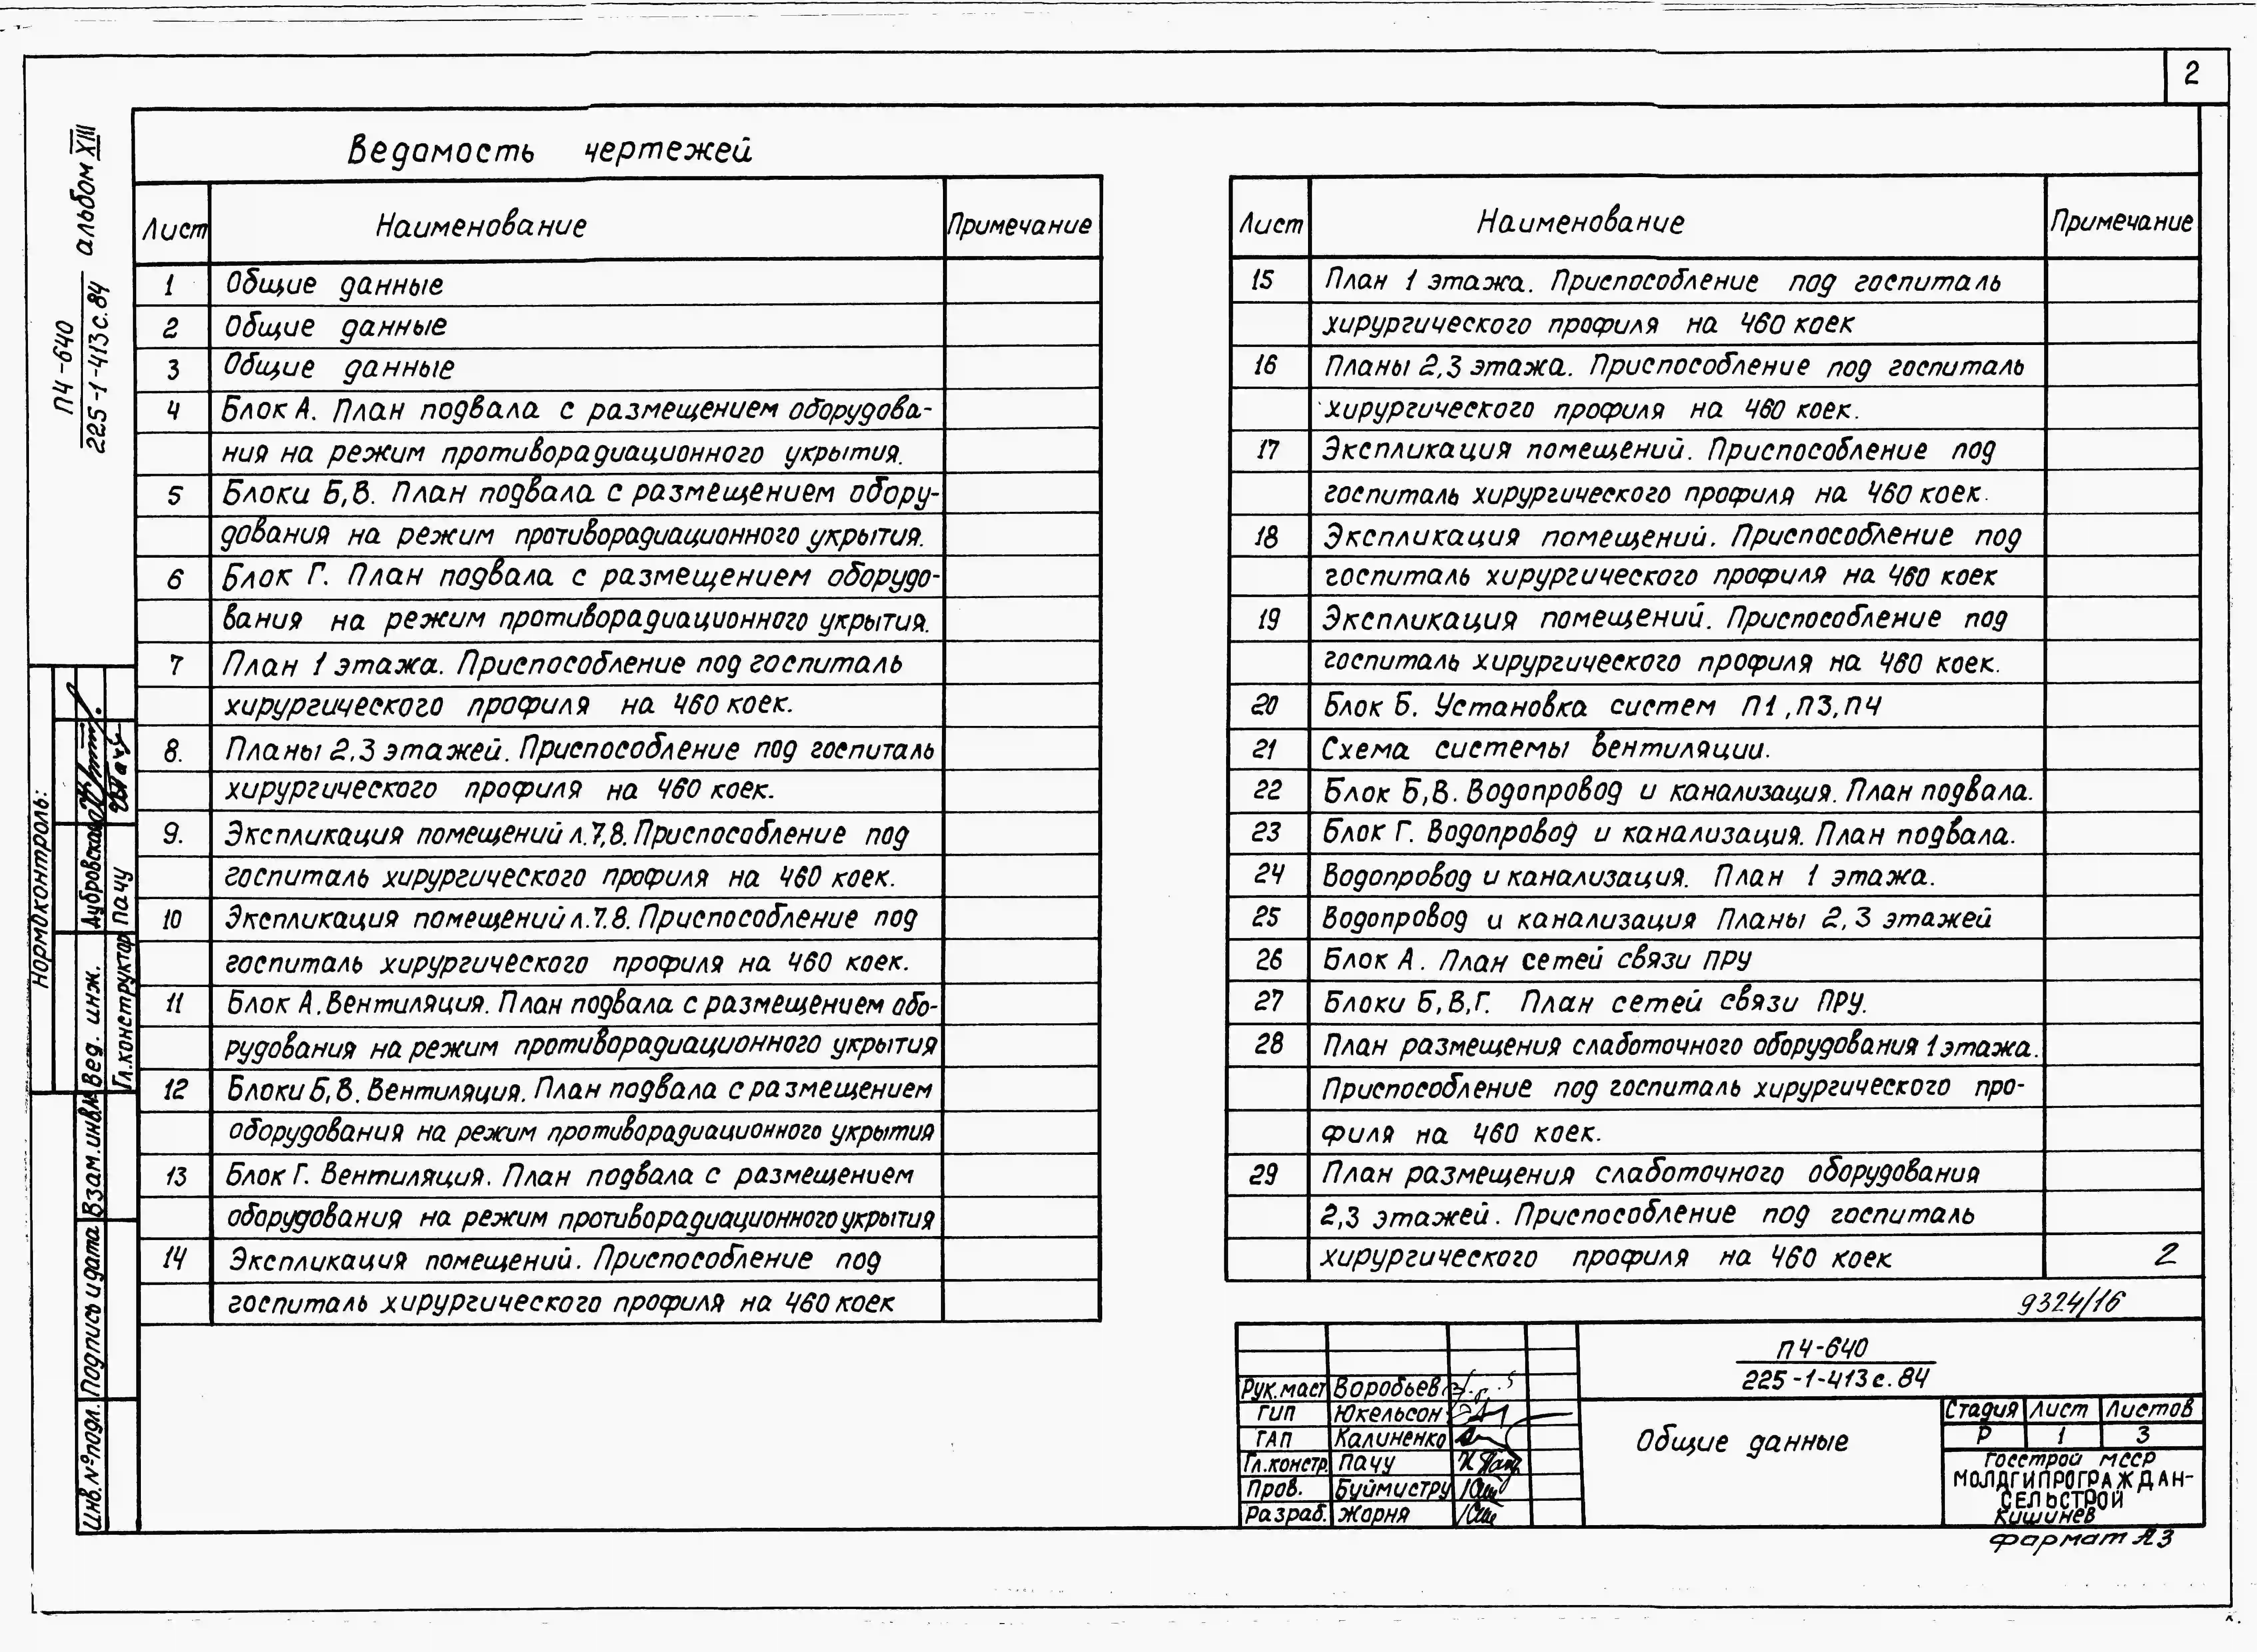 2
Ведомость чертежей
Лист Наименование Примечание
1 Общие данные
2 Общие данные
3 Общие данные
4 Блок А. План подвала с размещением оборудова-
ния на режим противорадиационного укрытия.
5 Блоки Б,В. План подвала с размещением обору-
дования на режим противорадиационного укрытия.
6 Блок Г. План подвала с размещением оборудо-
вания на режим противорадиационного укрытия.
7 План 1 этажа. Приспособление под госпиталь
хирургического профиля на 460 коек.
8. Планы 2,3 этажей. Приспособление под госпиталь
хирургического профиля на 460 коек.
9. Экспликация помещений л.7,8. Приспособление под
госпиталь хирургического профиля на 460 коек.
10 Экспликация помещений л.7.8. Приспособление под
госпиталь хирургического профиля на 460 коек.
11 Блок А. Вентиляция. План подвала с размещением обо-
рудования на режим противорадиационного укрытия
12 Блоки Б,В. Вентиляция. План подвала с размещением
оборудования на режим противорадиационного укрытия
13 Блок Г. Вентиляция. План подвала с размещением
оборудования на режим противорадиационного укрытия
14 Экспликация помещений. Приспособление под
госпиталь хирургического профиля на 460 коек
Лист Наименование Примечание
15 План 1 этажа. Приспособление под госпиталь
хирургического профиля на 460 коек
16 Планы 2,3 этажа. Приспособление под госпиталь
хирургического профиля на 460 коек.
17 Экспликация помещений. Приспособление под
госпиталь хирургического профиля на 460 коек.
18 Экспликация помещений. Приспособление под
госпиталь хирургического профиля на 460 коек
19 Экспликация помещений. Приспособление под
госпиталь хирургического профиля на 460 коек.
20 Блок Б. Установка систем П1,П3,П4
21 Схема системы вентиляции.
22 Блок Б,В. Водопровод и канализация. План подвала.
23 Блок Г. Водопровод и канализация. План подвала.
24 Водопровод и канализация. План 1 этажа.
25 Водопровод и канализация Планы 2,3 этажей
26 Блок А. План сетей связи ПРУ
27 Блоки Б,В,Г. План сетей связи ПРУ.
28 План размещения слаботочного оборудования 1 этажа.
Приспособление под госпиталь хирургического про-
филя на 460 коек.
29 План размещения слаботочного оборудования
2,3 этажей. Приспособление под госпиталь
хирургического профиля на 460 коек 2
9324/16
П4-640
225-1-413с.84
Рук.маст Воробьев
ГИП Юкельсон
ГАП Калиненко
Гл.констр. Пачу
Пров. Буймистру
Разраб. Жарня
Общие данные
Стадия Лист Листов
Р 1 3
Госстрой МССР
МОЛДГИПРОГРАЖДАН-
СЕЛЬСТРОЙ
Кишинев
формат А3
П4-640
225-1-413с.84
альбом XIII
Нормоконтроль:
Вед. инж. Дубровская
Гл.конструктор Пачу
Взам.инв.№
Подпись и дата
Инв.№подл.